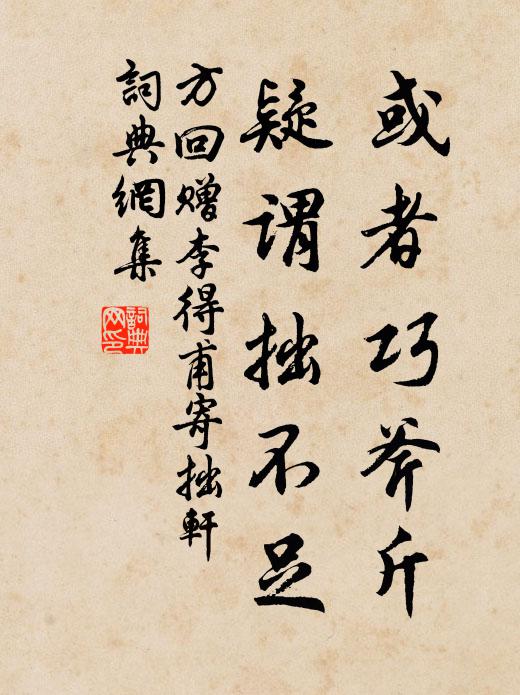 或者巧斧斤
疑谓拙不足
方回赠李得甫寄拙軒
詞典網集
詞典网印